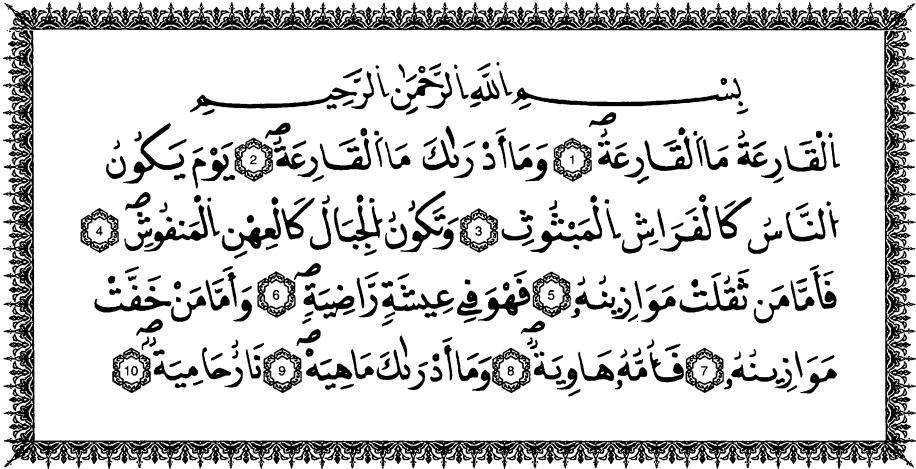 بِسْمِ اللَّهِ الرَّحْمَٰنِ الرَّحِيمِ
الْقَارِعَةُ مَا الْقَارِعَةُ ۖ 1 وَمَا أَدْرَىٰكَ مَا الْقَارِعَةُ ۖ 2 يَوْمَ يَكُونُ
النَّاسُ كَالْفَرَاشِ الْمَبْثُوثِ 3 وَتَكُونُ الْجِبَالُ كَالْعِهْنِ الْمَنْفُوشِ ۖ 4
فَأَمَّا مَن ثَقُلَتْ مَوَازِينُهُۥ 5 فَهْوَ فِي عِيشَةٍ رَّاضِيَةٍ ۖ 6 وَأَمَّا مَنْ خَفَّتْ
مَوَازِينُهُۥ 7 فَأُمُّهُۥ هَاوِيَةٌ ۖ 8 وَمَا أَدْرَىٰكَ مَا هِيَهْ ۖ 9 نَارٌ حَامِيَةٌ ۖ 10